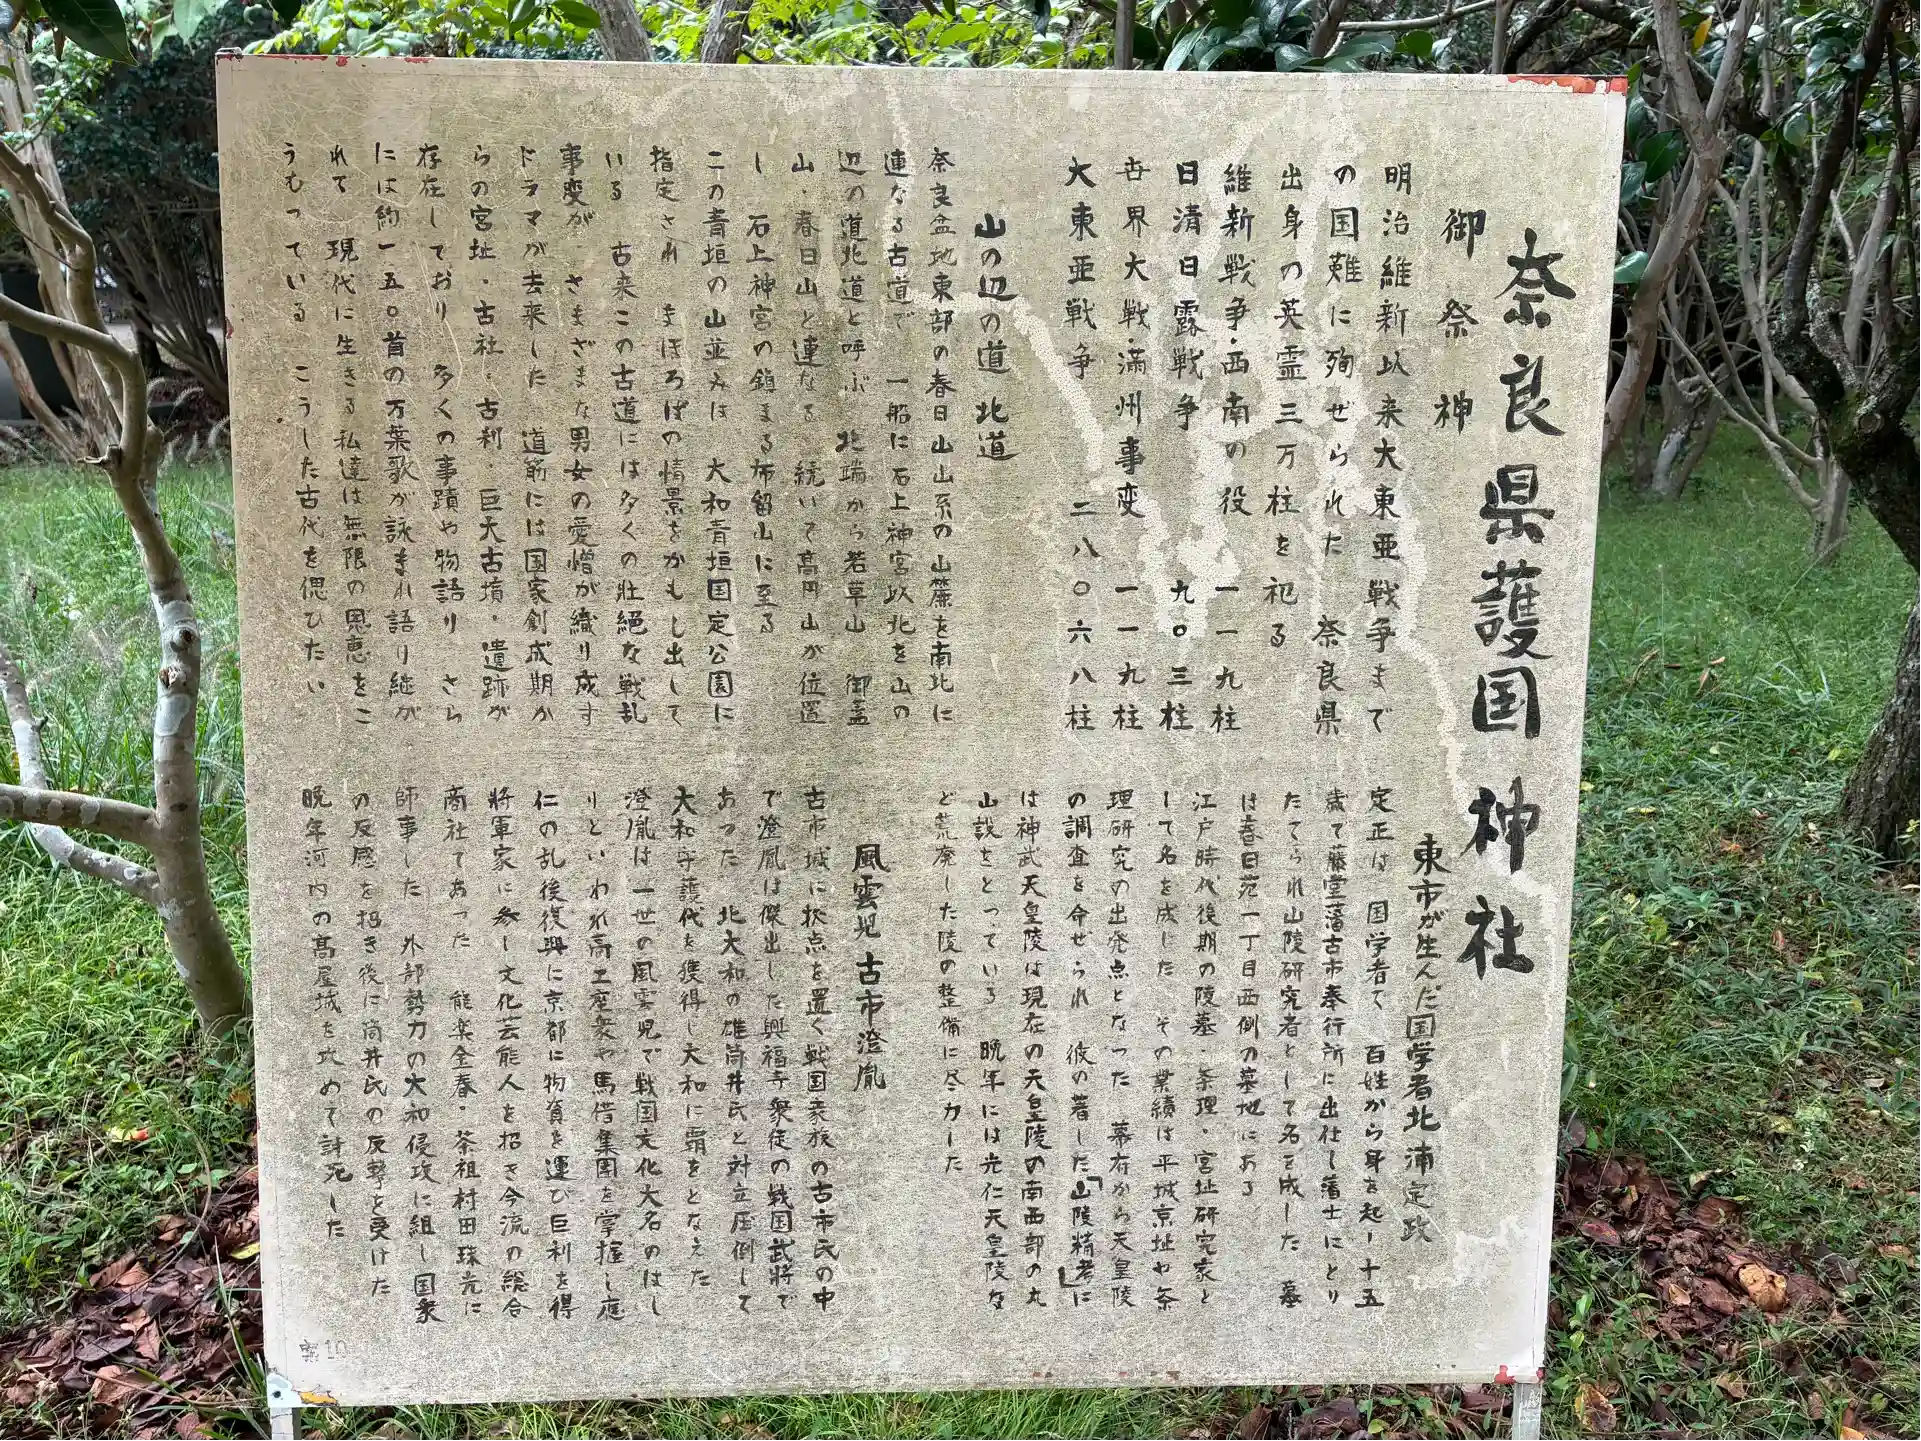 奈良県護国神社
御祭神
明治維新以来大東亜戦争まで
の国難に殉ぜられた 奈良県
出身の英霊三万柱を祀る
維新戦争・西南の役 一一九柱
日清日露戦争 九〇三柱
世界大戦・満州事変 一一一九柱
大東亜戦争 二八〇六八柱
山の辺の道 北道
奈良盆地東部の春日山山系の山麓を南北に
連なる古道で 一般に石上神宮以北を山の
辺の道北道と呼ぶ 北端から若草山 御蓋
山・春日山と連なる 続いて高円山が位置
し 石上神宮の鎮まる布留山に至る
この青垣の山並みは 大和青垣国定公園に
指定され まほろばの情景をかもし出して
いる 古来この古道には多くの壮絶な戦乱
事変が さまざまな男女の愛憎が織り成す
ドラマが去来した 道筋には国家創成期か
らの宮址・古社・古刹・巨大古墳・遺跡が
存在しており 多くの事蹟や物語り さら
には約一五〇首の万葉歌が詠まれ語り継が
れて 現代に生きる私達は無限の恩恵をこ
うむっている こうした古代を偲びたい
東市が生んだ国学者北浦定政
定正は 国学者で 百姓から身を起し十五
歳で藤堂藩古市奉行所に出仕し藩士にとり
たてられ山陵研究者として名を成した 墓
は春日苑一丁目西側の墓地にある
江戸時代後期の陵墓・条理・宮址研究家と
して名を成した その業績は平城京址や条
理研究の出発点となった 幕府から天皇陵
の調査を命ぜられ 彼の著した「山陵精考」に
は神武天皇陵は現在の天皇陵の南西部の丸
山説をとっている 晩年には光仁天皇陵な
ど荒廃した陵の整備に尽力した
風雲児 古市澄胤
古市城に拠点を置く戦国豪族の古市氏の中
で澄胤は傑出した興福寺衆徒の戦国武将で
あった 北大和の雄筒井氏と対立圧倒して
大和守護代を獲得し大和に覇をとなえた
澄胤は一世の風雲児で戦国文化大名のはし
りといわれ高工座衆や馬借集団を掌握し応
仁の乱後復興に京都に物資を運び巨利を得
将軍家に参し文化芸能人を招き今流の総合
商社であった 能楽金春・茶祖村田珠光に
師事した 外部勢力の大和侵攻に組し国衆
の反感を招き後に筒井氏の反撃を受けた
晩年河内の高屋城を攻めて討死した